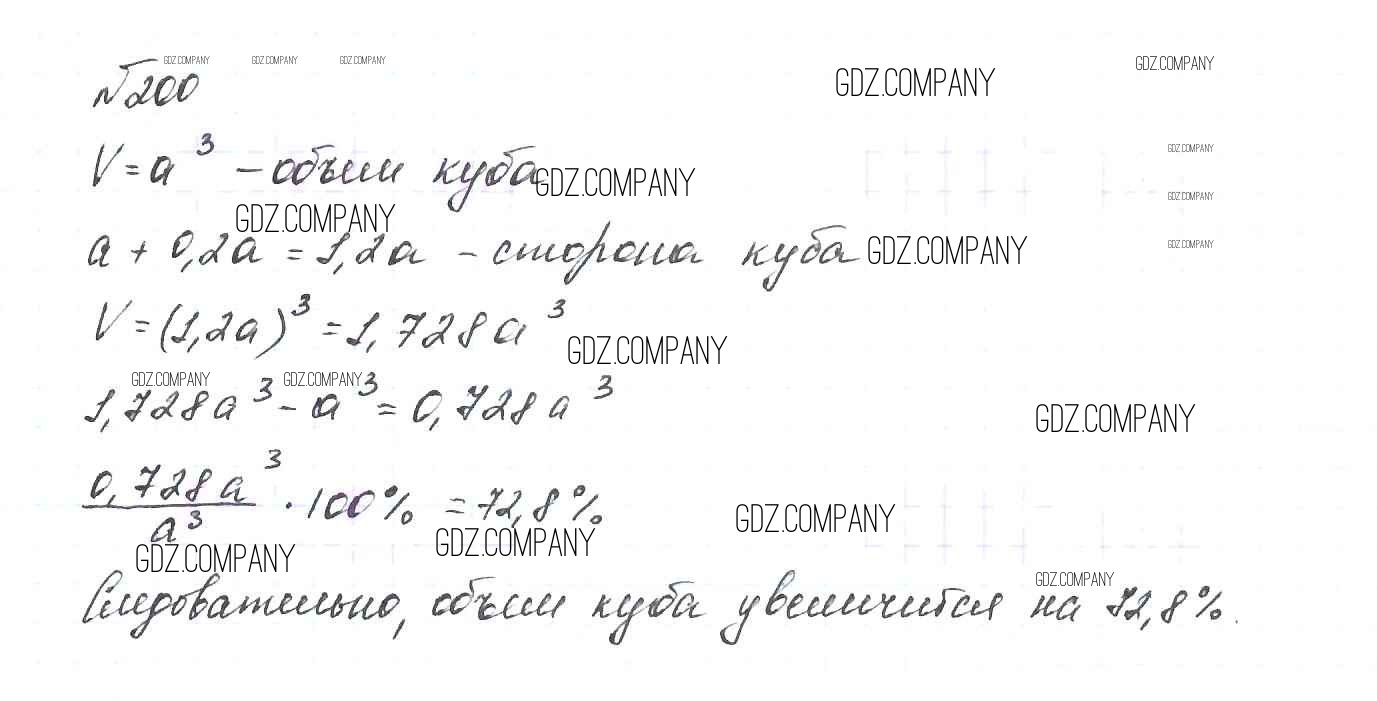 GDZ.COMPANY GDZ.COMPANY GDZ.COMPANY GDZ.COMPANY
№200 GDZ.COMPANY
GDZ.COMPANY
V = a³ – объем куба GDZ.COMPANY
GDZ.COMPANY
GDZ.COMPANY
a + 0,2a = 1,2a – сторона куба GDZ.COMPANY
GDZ.COMPANY
V = (1,2a)³ = 1,728a³
GDZ.COMPANY
GDZ.COMPANY GDZ.COMPANY
1,728a³ – a³ = 0,728a³
GDZ.COMPANY
0,728a³ / a³ · 100% = 72,8%
GDZ.COMPANY
GDZ.COMPANY
GDZ.COMPANY
GDZ.COMPANY
Следовательно, объем куба увеличится на 72,8%.